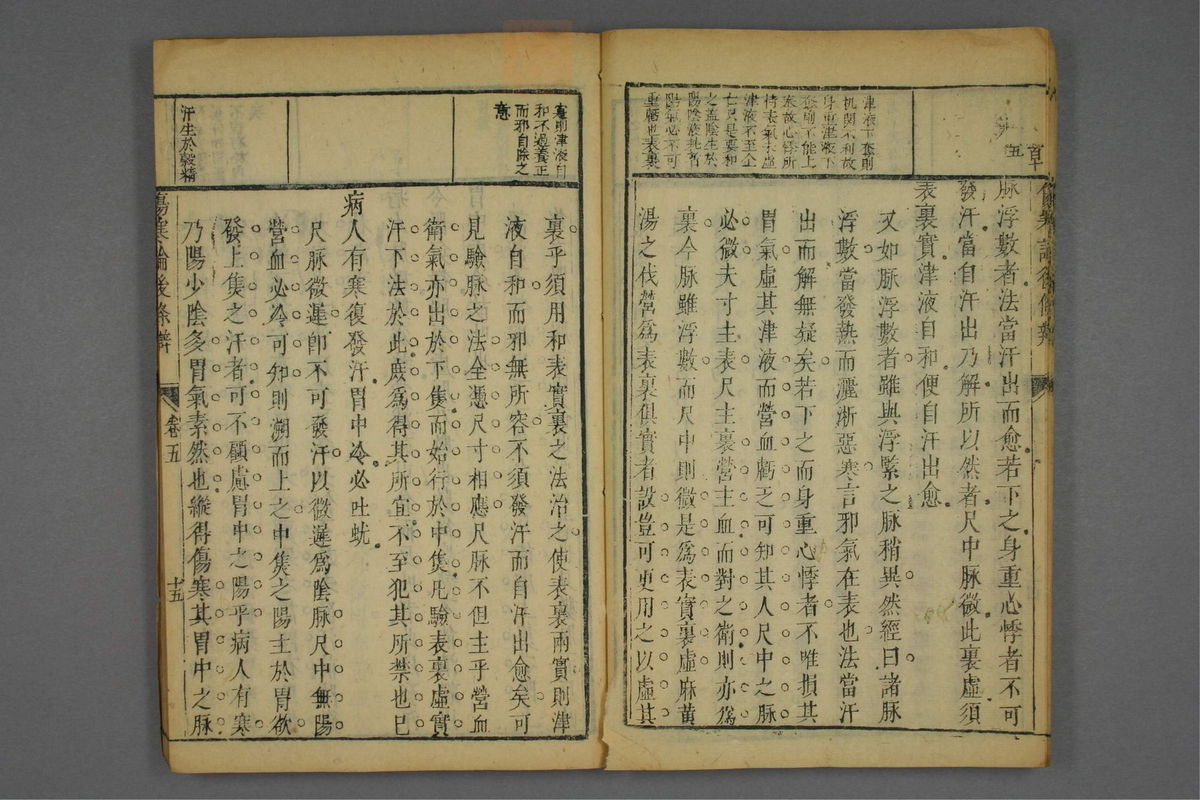 津液下奪則
身重津液下
脉浮數者法當汗出而愈若下之身重心悸者不可
發汗當自汗出乃解所以然者尺中脉微此裏虛須
表裏實津液自和便自汗出愈
又如脉浮數者雖與浮緊之脉稍異然經曰諸脉
浮數當發熱而灑淅惡寒言邪氣在表也法當汗
出而解無疑矣若下之而身重心悸者不唯損其
胃氣虛其津液而營血虧乏可知其人尺中之脉
必微夫寸主表尺主裏營主血而對之衛則亦爲
裏今脉雖浮數而尺中則微是爲表實裏虛麻黄
湯之伐營爲表裏俱實者設豈可更用之以虛其
實則津液自
和不過養正
而邪自除之
意
裏乎須用和表實裏之法治之使表裏兩實則津
液自和而邪無所容不須發汗而自汗出愈矣可
見驗脉之法全憑尺寸相應尺脉不但主乎營血
衛氣亦出於下焦而始行於中焦凡驗表裏虛實
汗下法於此庶爲得其所宜不至犯其所禁也已
病人有寒復發汗胃中冷必吐蚘
尺脉微遲卽不可發汗以微遲爲陰脉尺中無陽
營血必冷可知則溯而上之中焦之陽主於胃欲
發上焦之汗者可不顧慮胃中之陽乎病人有寒
乃陽少陰多胃氣素然也縱得傷寒其胃中之脉
汗生於穀精
傷寒論後條辯
卷五
十五